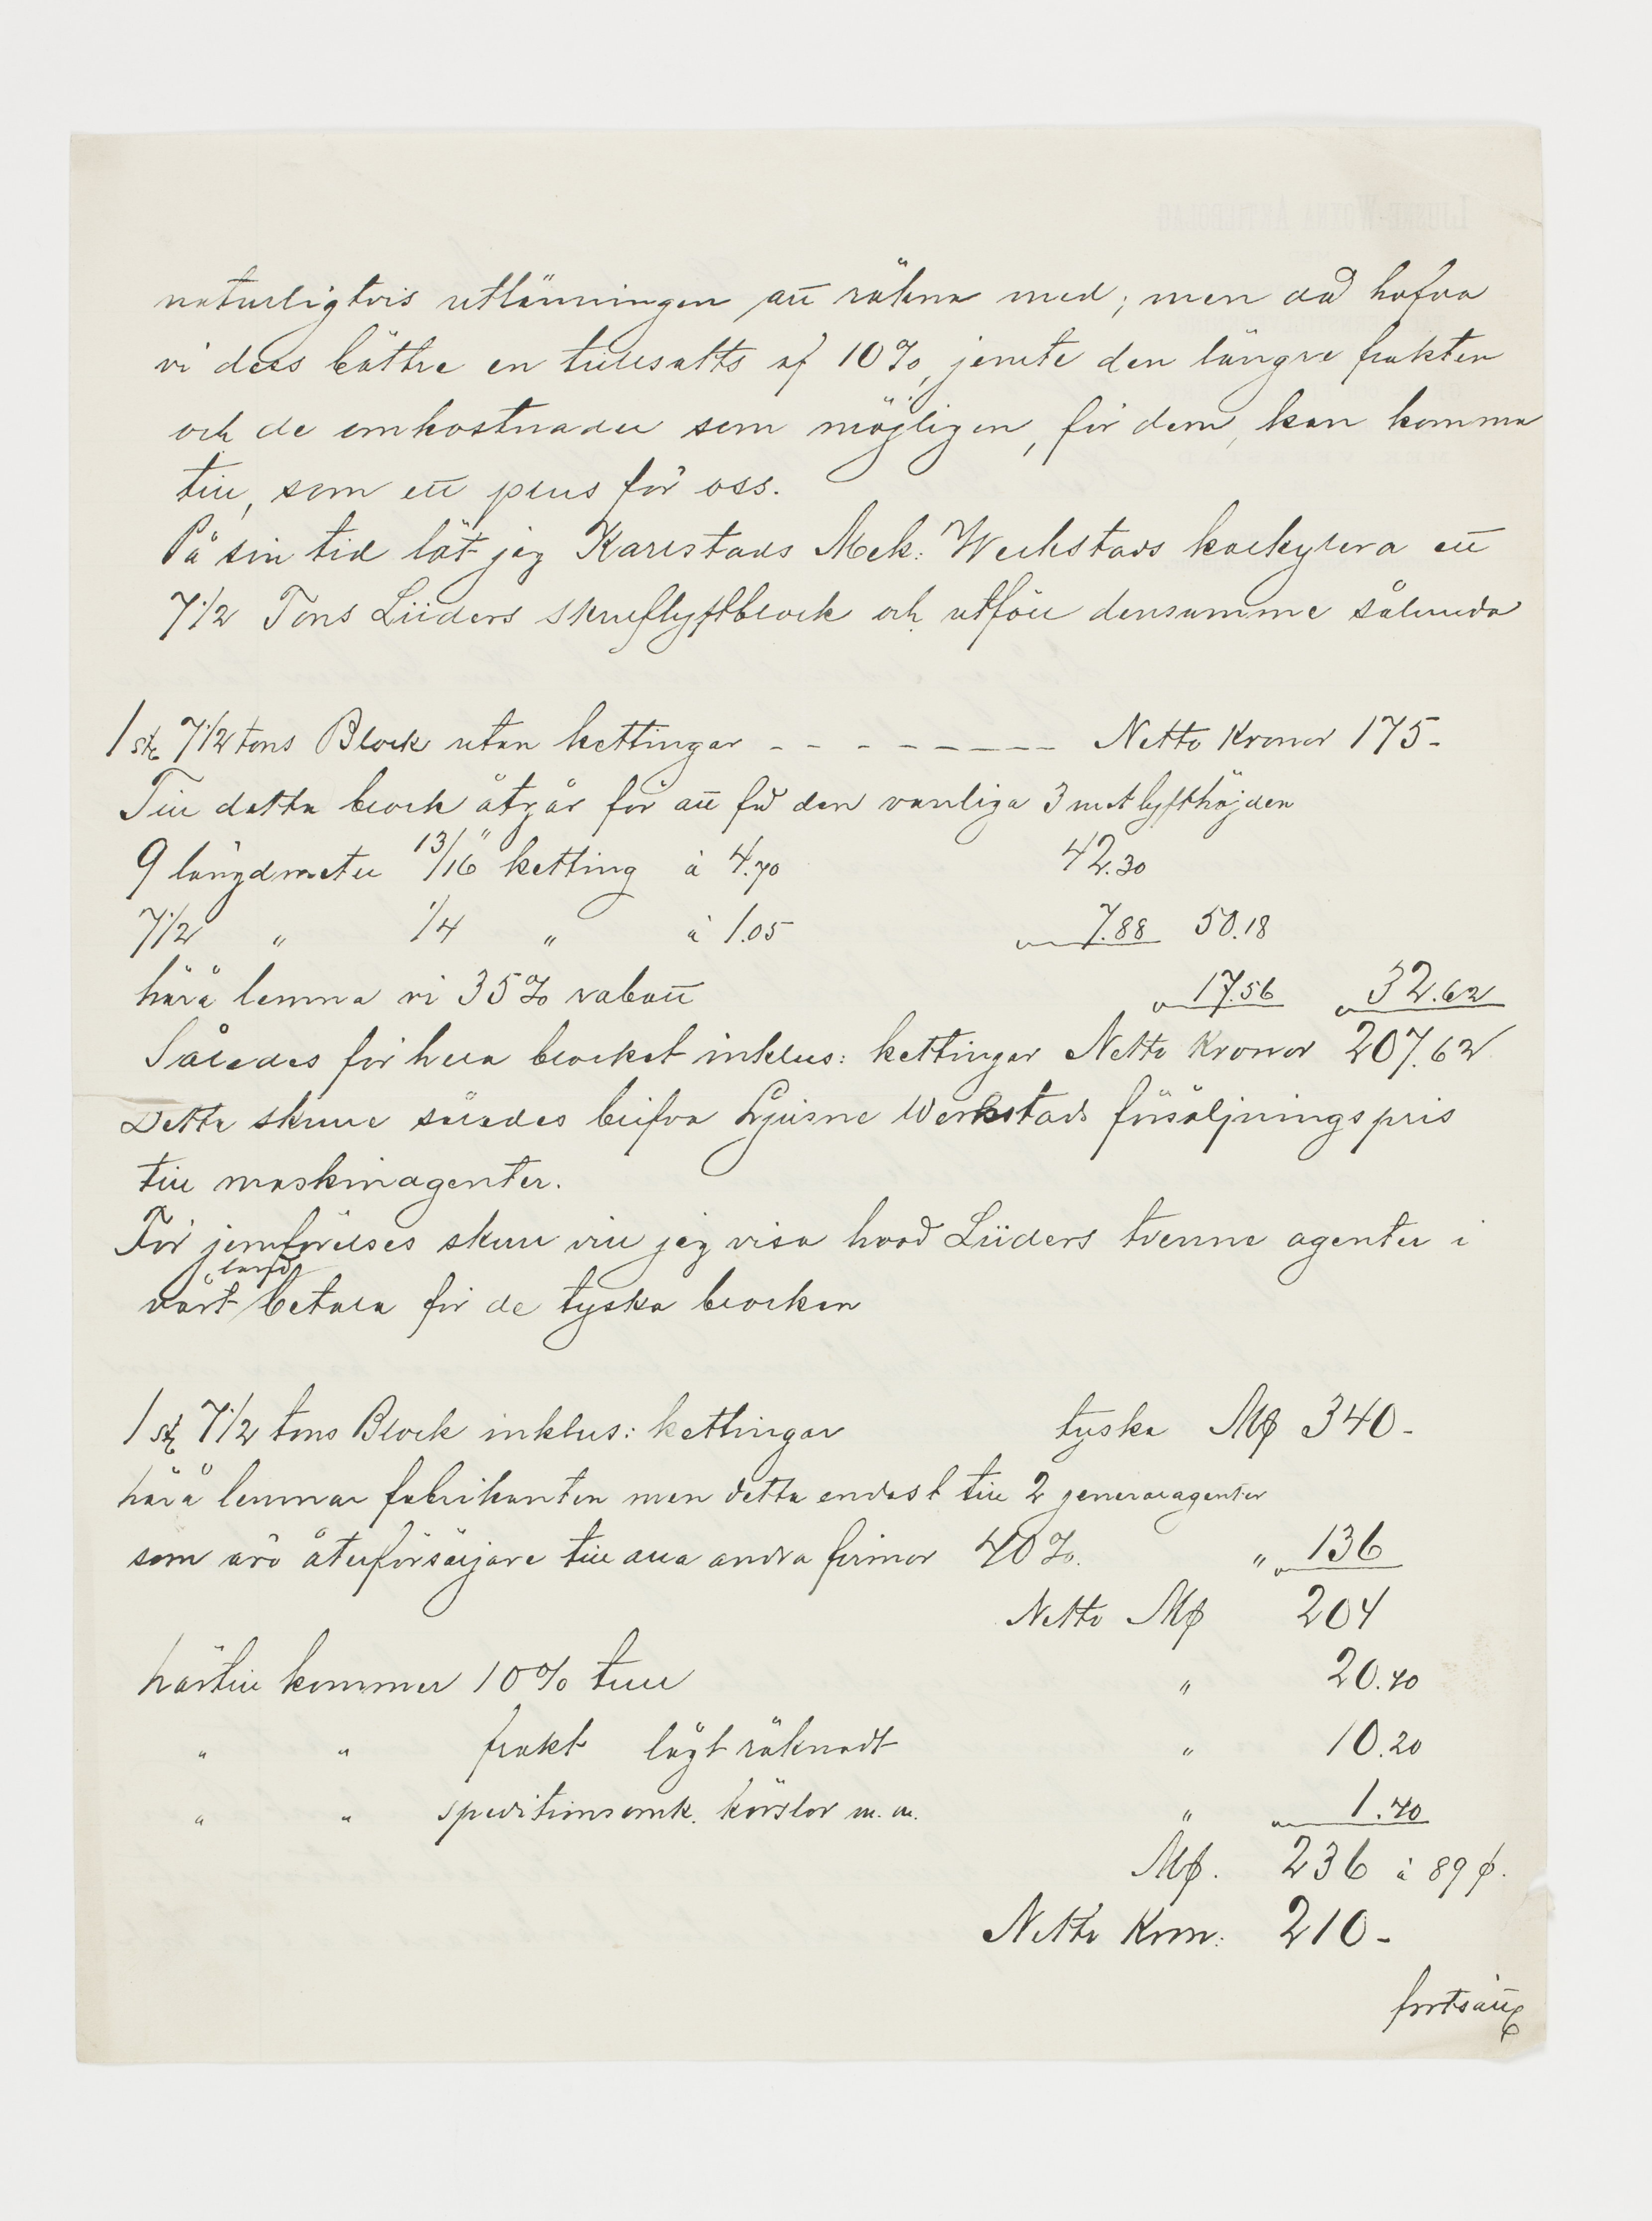 naturligtvis utlänningen att räkna med; men då hafva
vi dess bättre en tullsatts af 10%, jemte den längre frakten
och de omkostnader som möjligen, för dem, kan komma
till, som ett plus för oss.
På sin tid lät jag Karlstads Mek: Werkstads kalkylera ett
7 1/2 Tons Lüders skruflyftblock och utföll densamme sålunda
1 st. 7 1/2 tons Block utan kettingar - - - - - - - - Netto Kronor 175-
Till detta block åtgår för att få den vanliga 3 met lyfthöjden
9 längdmeter 13/16" ketting à 4.70 42.30
7 1/2 " 1/4 " à 1.05 7.88 50.18
härå lemna vi 35% rabatt 17.56 32.62
Således för hela blocket inklus: kettingar Netto Kronor 207.62
Detta skulle således blifva Ljusne Werkstads försäljningspris
till maskinagenter.
För jemförelses skull vill jag visa hvad Lüders tvenne agenter i
vårt land betala för de tyska blocken
1 st. 7 1/2 tons Block inklus: kettingar tyska M# 340-
härå lemnar fabrikanten men detta endast till 2 generalagenter
som äro återförsäljare till alla andra firmor 40%. " 136
Netto M# 204
härtill kommer 10% tull " 20.40
" " frakt lågt räknadt " 10.20
" " speditionsomk. körslor m.m. " 1.40
M#. 236 à 89 ø.
Netto Kron: 210-
fortsätt